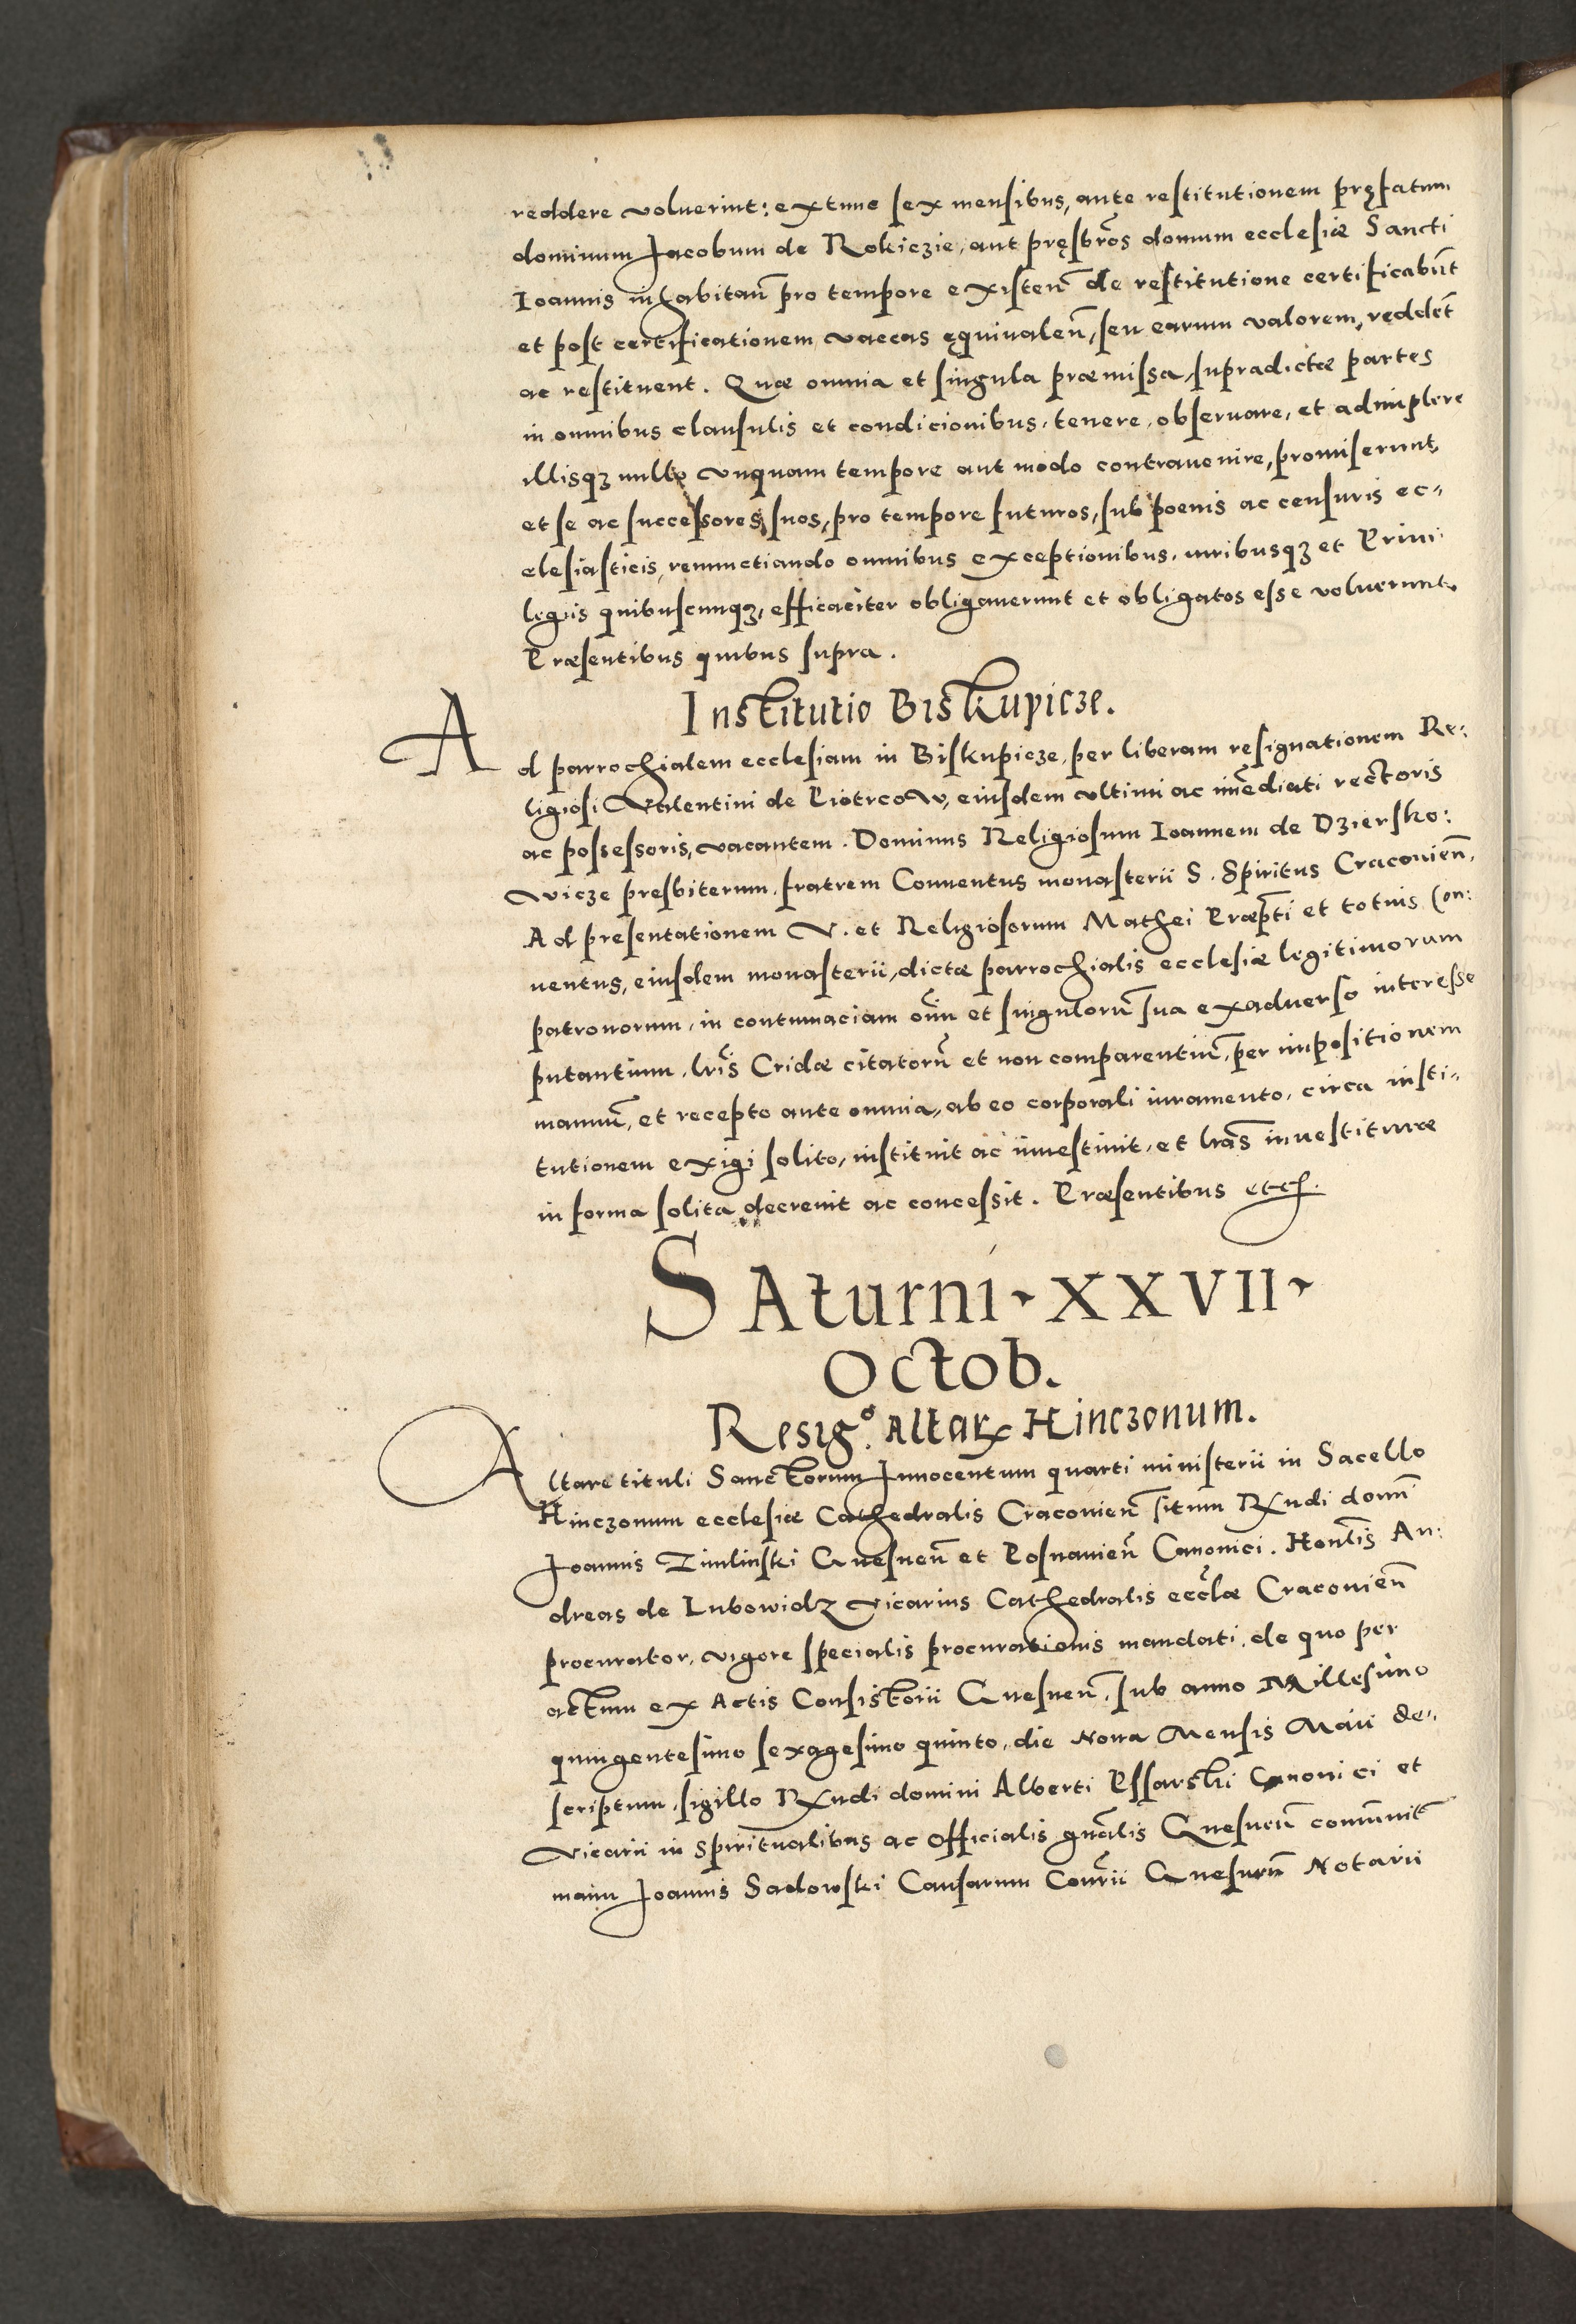 reddere voluerint: extunc sex mensibus, ante restitutionem pręfatum
dominum Jacobum de Rokiczie, aut pręsbr̃os domum ecclesiæ Sancti
Ioannis inhabitan̄ pro tempore existen̄ de restitutione certificabūt
et post certificationem vaccas ęquivalen̄, seu earum valorem, reddēt
ac restituent. Quæ omnia et singula præmissa, supradictæ partes
in omnibus clausulis et condicionibus, tenere, observare, et adimplere
illisqꝫ nullo unquam tempore aut modo contravenire, promiserunt,
et se ac successores suos, pro tempore futuros, sub poenis ac censuris ec〃
clesiasticis, renunctiando omnibus exceptionibus, iuribusqꝫ et Privi
legiis quibuscunqꝫ, efficaciter obligaverunt et obligatos esse voluerunt.
Præsentibus quibus supra.
Institutio Biskupicze.
Ad parrochialem ecclesiam in Biskupicze, per liberam resignationem Re:
ligiosi Valentini de Piotrcow, eiusdem ultimi ac im̄ediati rectoris
ac possessoris, vacantem. Dominus Religiosum Ioannem de Dziersko:
wicze presbiterum, fratrem Conventus monasterii S. Spiritus Cracovien̄,
Ad presentationem V. et Religiosorum Mathei Præp̄ti et totius Con:
ventus, eiusdem monasterii, dictæ parrochialis ecclesiæ legitimorum
patronorum, in contumaciam om̄iū et singulorū sua exadverso interesse
putantium, lr̄is Cridæ citatorū et non comparentiū, per impositionem
manuū, et recepto ante omnia, ab eo corporali iuramento, circa insti〃
tutionem exigi solito, instituit ac investivit, et lr̄as investituræ
in forma solita decrevit ac concessit. Præsentibus etc.
SAturni XXVII
Octob.
Resig.º Altarꝭ Hinczonum.
Altare tituli Sanctorum Innocentum quarti ministerii in Sacello
Hinczonum ecclesiæ Cathedralis Cracovien̄ situm Rx̄ndi domī
Joannis Zimlinski Gnesnen̄ et Posnanien̄ Canonici. Hon̄lis An:
dreas de Lubowidz vicarius Cathedralis eccl̄æ Cracovien̄
procurator, vigore specialis procurationis mandati, de quo per
actum ex Actis Consistorii Gnesnen̄, sub anno Millesimo
quingentesimo sexagesimo quinto, die Nona Mensis Maii de〃
scriptum, sigillo Rx̄ndi domini Alberti Pssarski Canonici et
Vicarii in Spiritualibus ac Officialis gn̄alis Gnesnen̄ com̄unitū
manu Joannis Sadowski Causarum Con̄rii Gnesnen̄ Notarii